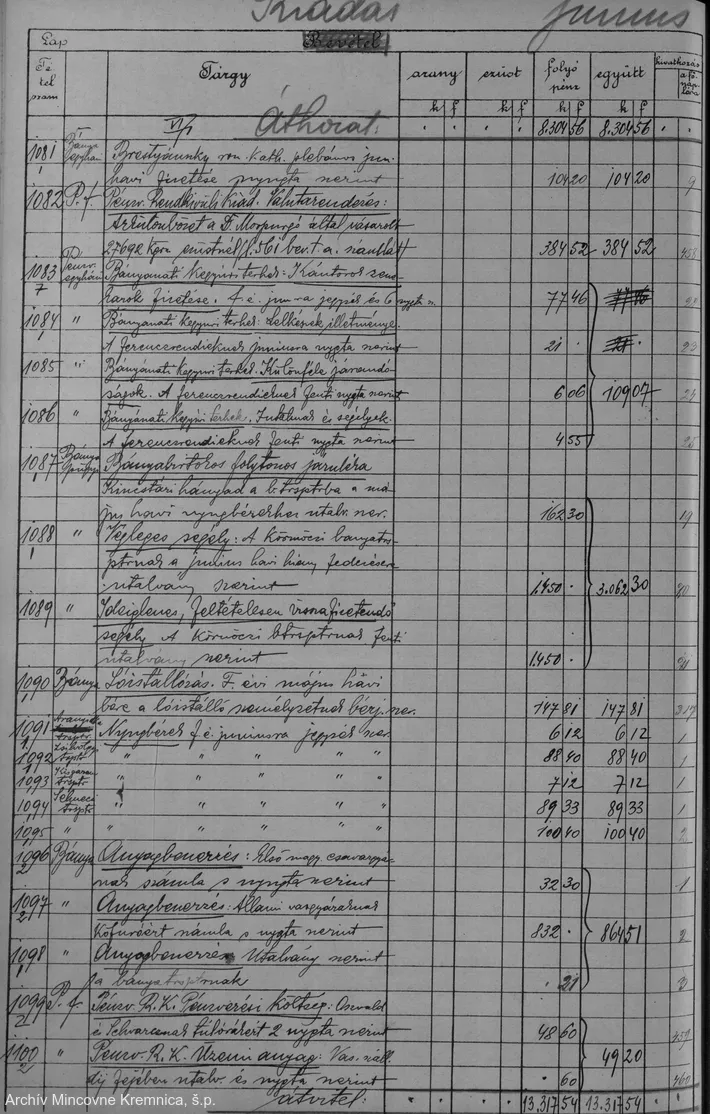 Kiadás június
Lap Bevétel
Tétel szám Tárgy arany ezüst folyó pénz együtt hivatkozás a főnaplóra
k f k f k f k f
VI/1 Áthozat: 8.304 56 8.304 56
1081 Bánya Brestyánszky rom. kath. plebános jun.
havi fizetése nyugta szerint 104 20 104 20 9
1082 P. f. Pénzv. Rendkívüli kiad. Valutarendezés:
Árkülönbözet a D. Morpurgó által vásárolt
384 52 384 52 458
1083 Bányanati Kegyúri terhek: Kántorok
fizetése. f. é. jun-ra jegyzék és 6 nyugta sz. 77 46 77 46
1084 " Bányanati Kegyúri terhek: Lelkészek illetménye
A ferencrendieknek juniusra nygta szerint 21 . 21 . 23
1085 " Bányanati Kegyúri terhek. Különféle járandó-
ságok. A ferencrendieknek fenti nygta szerint 6 06 109 07 24
1086 " Bányanati Kegyúri terhek. Jutalmak és segélyek.
A ferencrendieknek fenti nygta szerint 4 55 25
1087 Bánya Bányabirtokos folytonos járuléka
Kincstári hányad a b. trsptrba a má-
jus havi nyugbérekhez utalv. sz. 162 30 19
1088 " Végleges segély: A Körmöczi bányatrs-
ptrnak a julius havi hiány fedezésére
utalvány szerint 1.450 . 3.062 30 20
1089 " Ideiglenes, feltételesen visszafizetendő
segély A Körmöczi btrsptrnak fenti
utalvány szerint 1.450 . 21
1090 Bánya Lóistállózás. F. évi május hávi
bére a lóistálló személyzetnek bérj. sz. 147 81 147 81 317
1091 Nyugbérek f. é. juniusra jegyzék sz. 6 12 6 12 1
1092 " " " " 88 40 88 40 1
1093 " " " " 7 12 7 12 1
1094 " " " " 89 33 89 33 1
1095 " " " " " 100 40 100 40 2
1096 Bánya Anyagbeszerzés: Első nagy csavargyá-
nak számla s nyugta szerint 32 30 1
1097 " Anyagbeszerzés: Állami vasgyáraknak
számla s nygta szerint 832 . 864 51 2
1098 " Anyagbeszerzés Utalvány szerint
a bányatrsptrnak . 21 3
1099 P. f. Pénzv. R. K. Pénzverési költség: Oswald
és Schvarcznak 2 nygta szerint 48 60 459
1100 " Pénzv. R. K. Üzemi anyag: Vas. száll.
díj fejében utalv. és nygta szerint . 60 49 20 460
átvitel: 13.317 54 13.317 54
Archív Mincovne Kremnica, š.p.